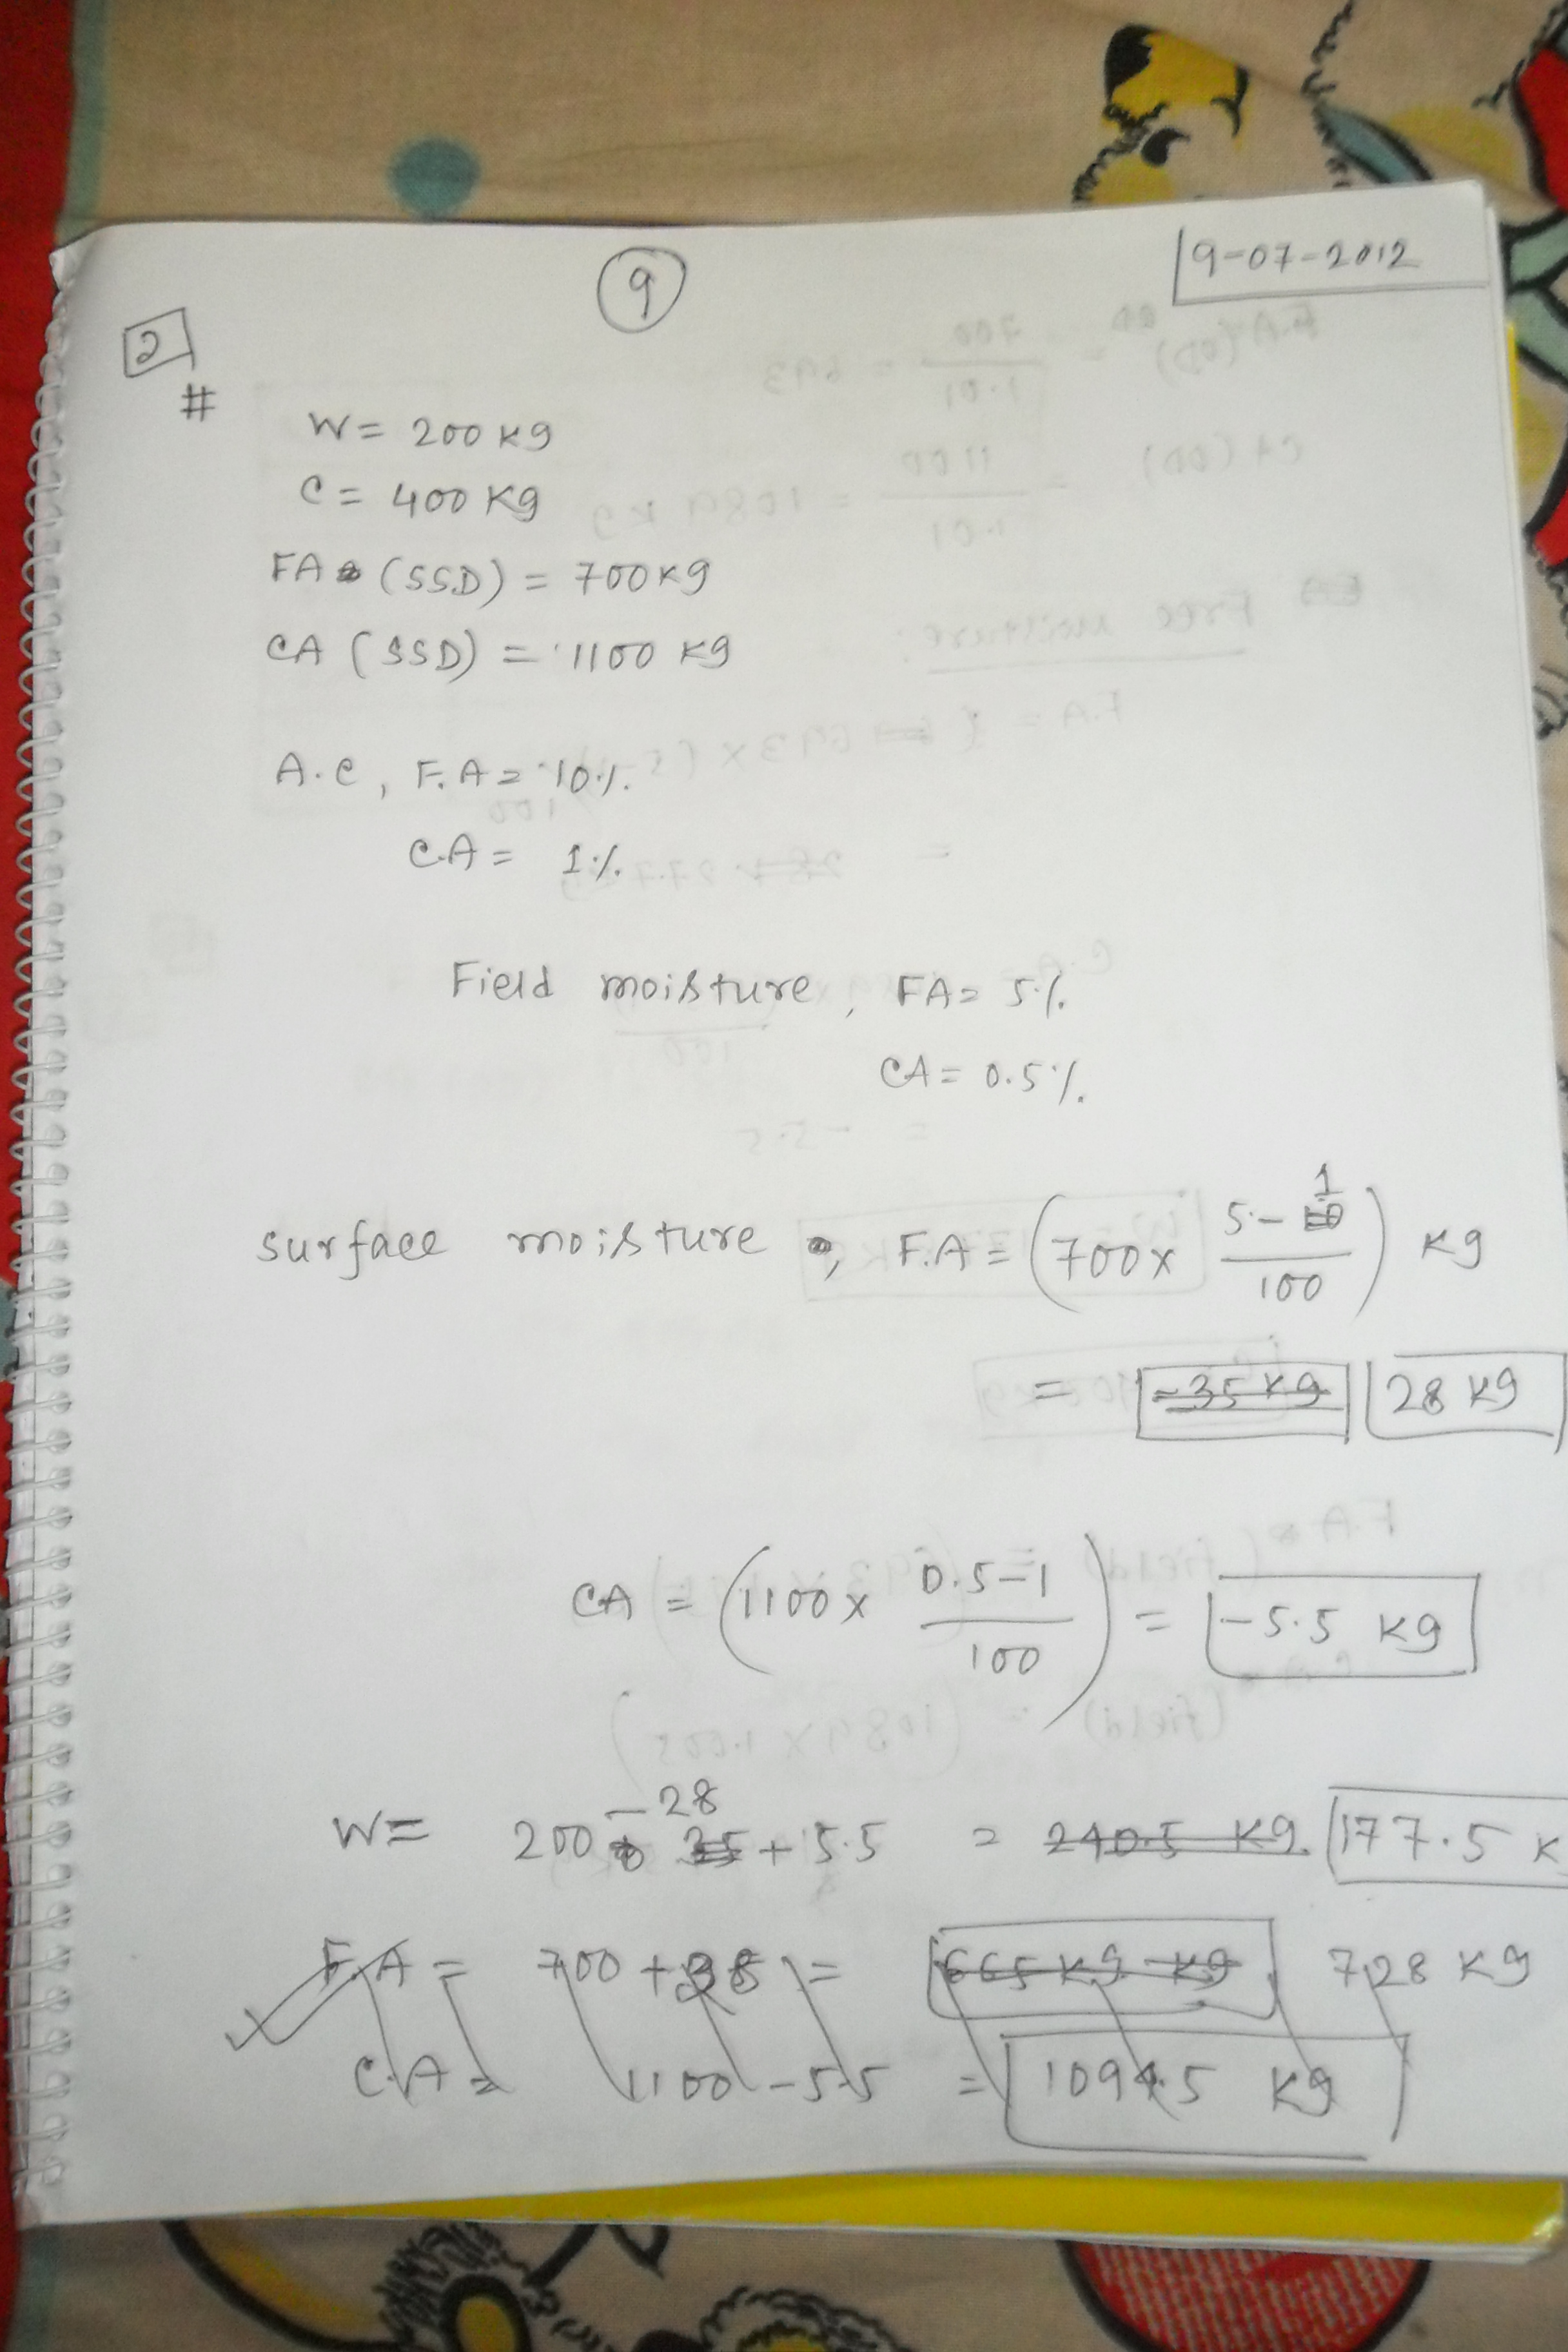 9
19-07-2012
2
#
W = 200 kg
C = 400 kg
FA (SSD) = 700 kg
CA (SSD) = 1100 kg
A.C, F.A = 10%
C.A = 1%
Field moisture, FA = 5%
CA = 0.5%
surface moisture, F.A = (700 x 5-1/100) kg
= -35 kg 28 kg
CA = (1100 x 0.5-1/100) = -5.5 kg
W = 200 - 28 + 5.5 = 240.5 kg. 177.5 k
F.A = 700 + 28 = 665 kg kg 728 kg
C.A = 1100 - 5.5 = 1094.5 kg